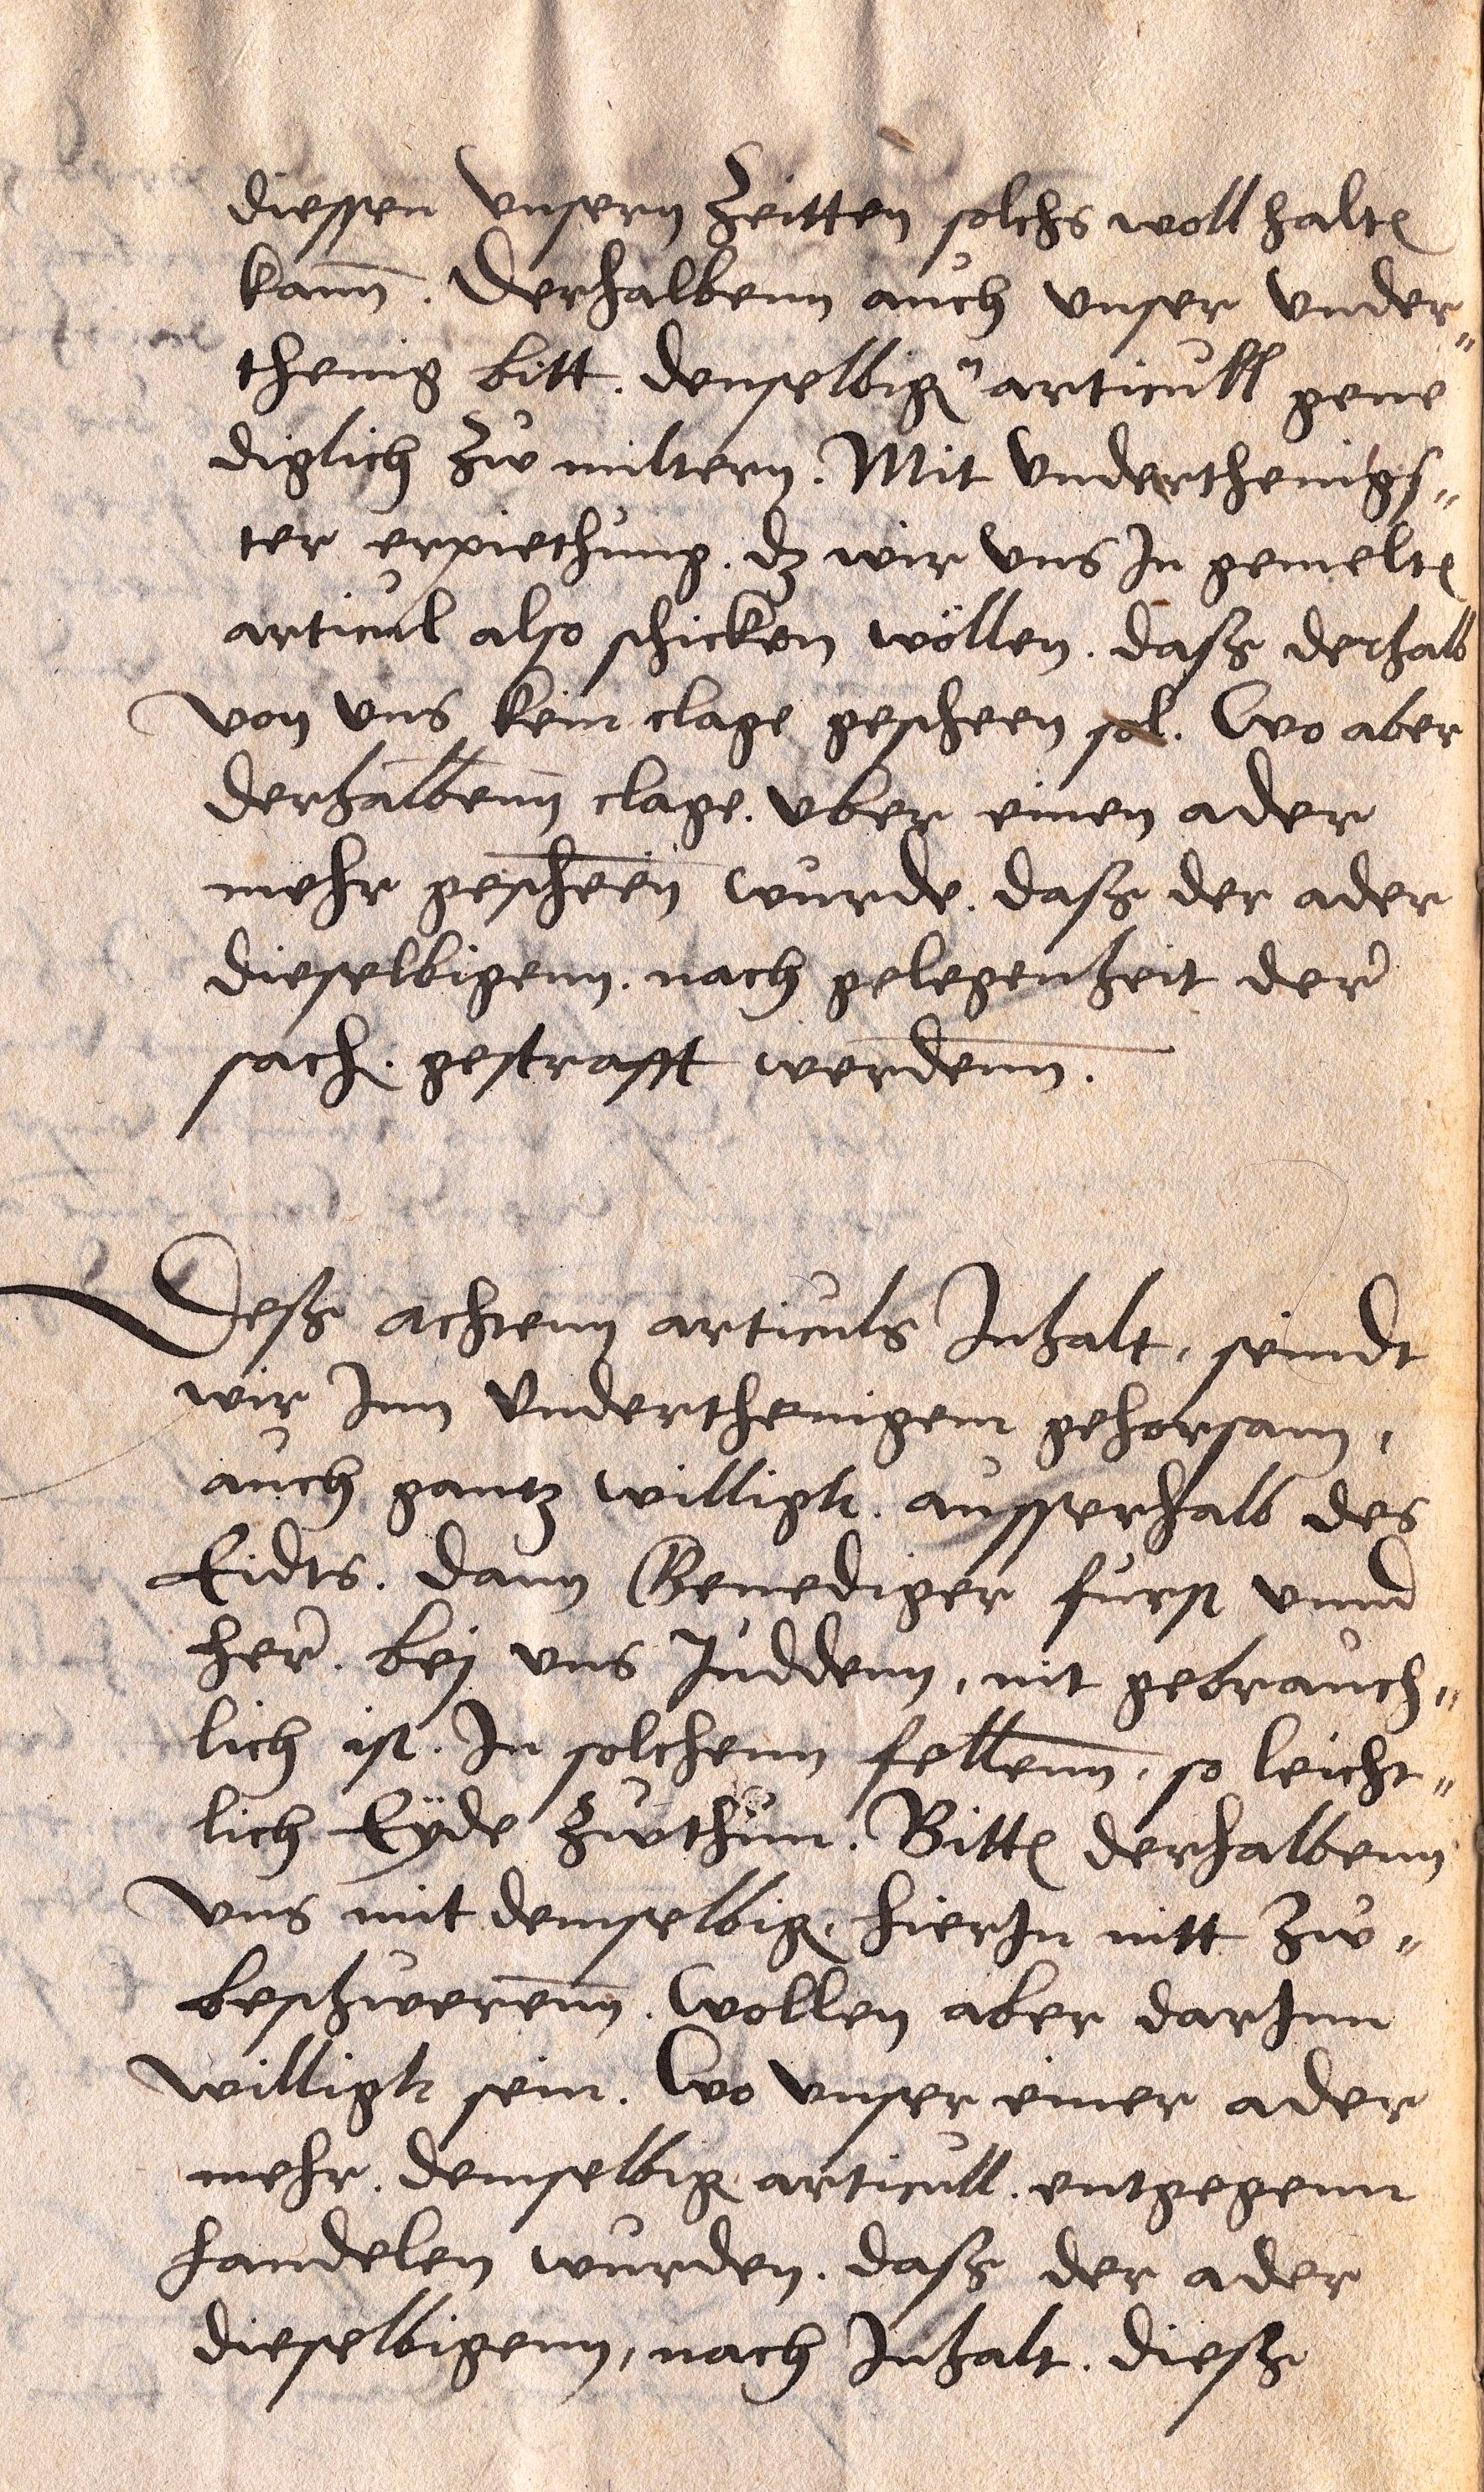 diessen vnsern Zeitten solchs woll halte
kann. Derhalbenn auch vnser vnder=
thenig bitt. denselbigen articull gene
diglich Zw miltern. Mit vnderthenigs=
ter erpiethung. dz wir vns In gemelte
articul also schicken wöllen. dasz derhalb
von vns kein clage gescheen sol. Wo aber
derhalbenn clage. vber einen ader
mehr gescheen wurde. dasz der ader
dieselbigenn. nach gelegenheit der
sach. gestrafft werdenn.
Desz achtenn articuls Inhalt, seindt
wir Inn vnderthenigem gehorsam,
auch gantz willigk. ausserhalb des
Eidts. dann Genediger furst vnnd
her. bej vns Juddenn, nit gebrauch=
lich ist. In solchenn fellenn, so leicht=
lich Eyde Zwthun. Bitte derhalbenn
vns mit demselbig. hierIn nitt Zw=
beschwerenn. Wollen aber darInn
willigk sein. Wo vnser einer ader
mehr. demselbig articull. entgegenn
handelen wurden. dasz der ader
dieselbigenn, nach Inhalt. diesz